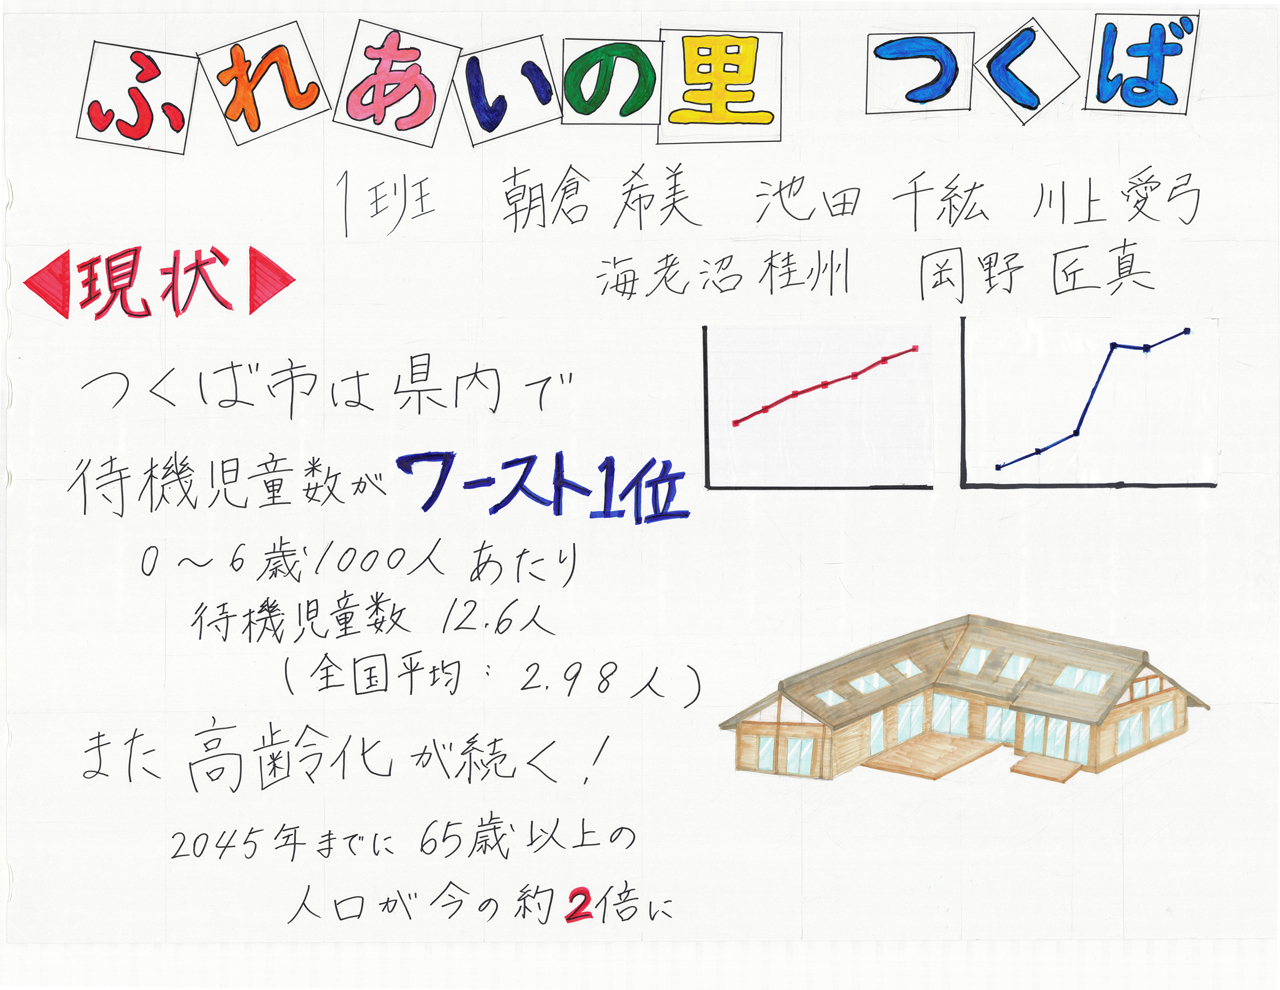 ふれあいの里 つくば
1班 朝倉 希美 池田 千紘 川上 愛弓
海老沼 桂州 岡野 匠真
現状
つくば市は県内で
待機児童数がワースト1位
0～6歳1000人あたり
待機児童数 12.6人
(全国平均：2.98人)
また高齢化が続く！
2045年までに65歳以上の
人口が今の約2倍に